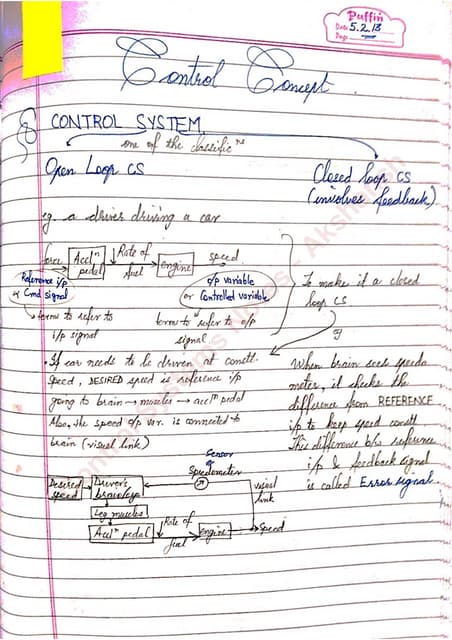 Puffin
Date 5.2.13
Page
Control Concept
CONTROL SYSTEM
one of the classific ns
Open Loop CS
Closed loop CS
(involves feedback)
eg. a driver driving a car
force
Accln pedal
Rate of fuel
Engine
speed
Reference i/p
or Cmd signal
o/p variable
or Controlled variable
terms to refer to
i/p signal
terms to refer to o/p
signal
To make it a closed
loop CS
eg
• If car needs to be driven at constt.
speed, DESIRED speed is reference i/p
going to brain → muscles → accln pedal
Also, the speed o/p var. is connected to
brain (visual link)
When brain sees speedo
meter, it checks the
difference from REFERENCE
i/p to keep speed constt
This difference b/w reference
i/p & feedback signal
is called Error signal.
Sensor
Speedometer
Desired speed
Driver's brain/eye
visual link
Leg muscles
Accln pedal
Rate of fuel
engine
Speed
Control Systems Notes - Akshansh